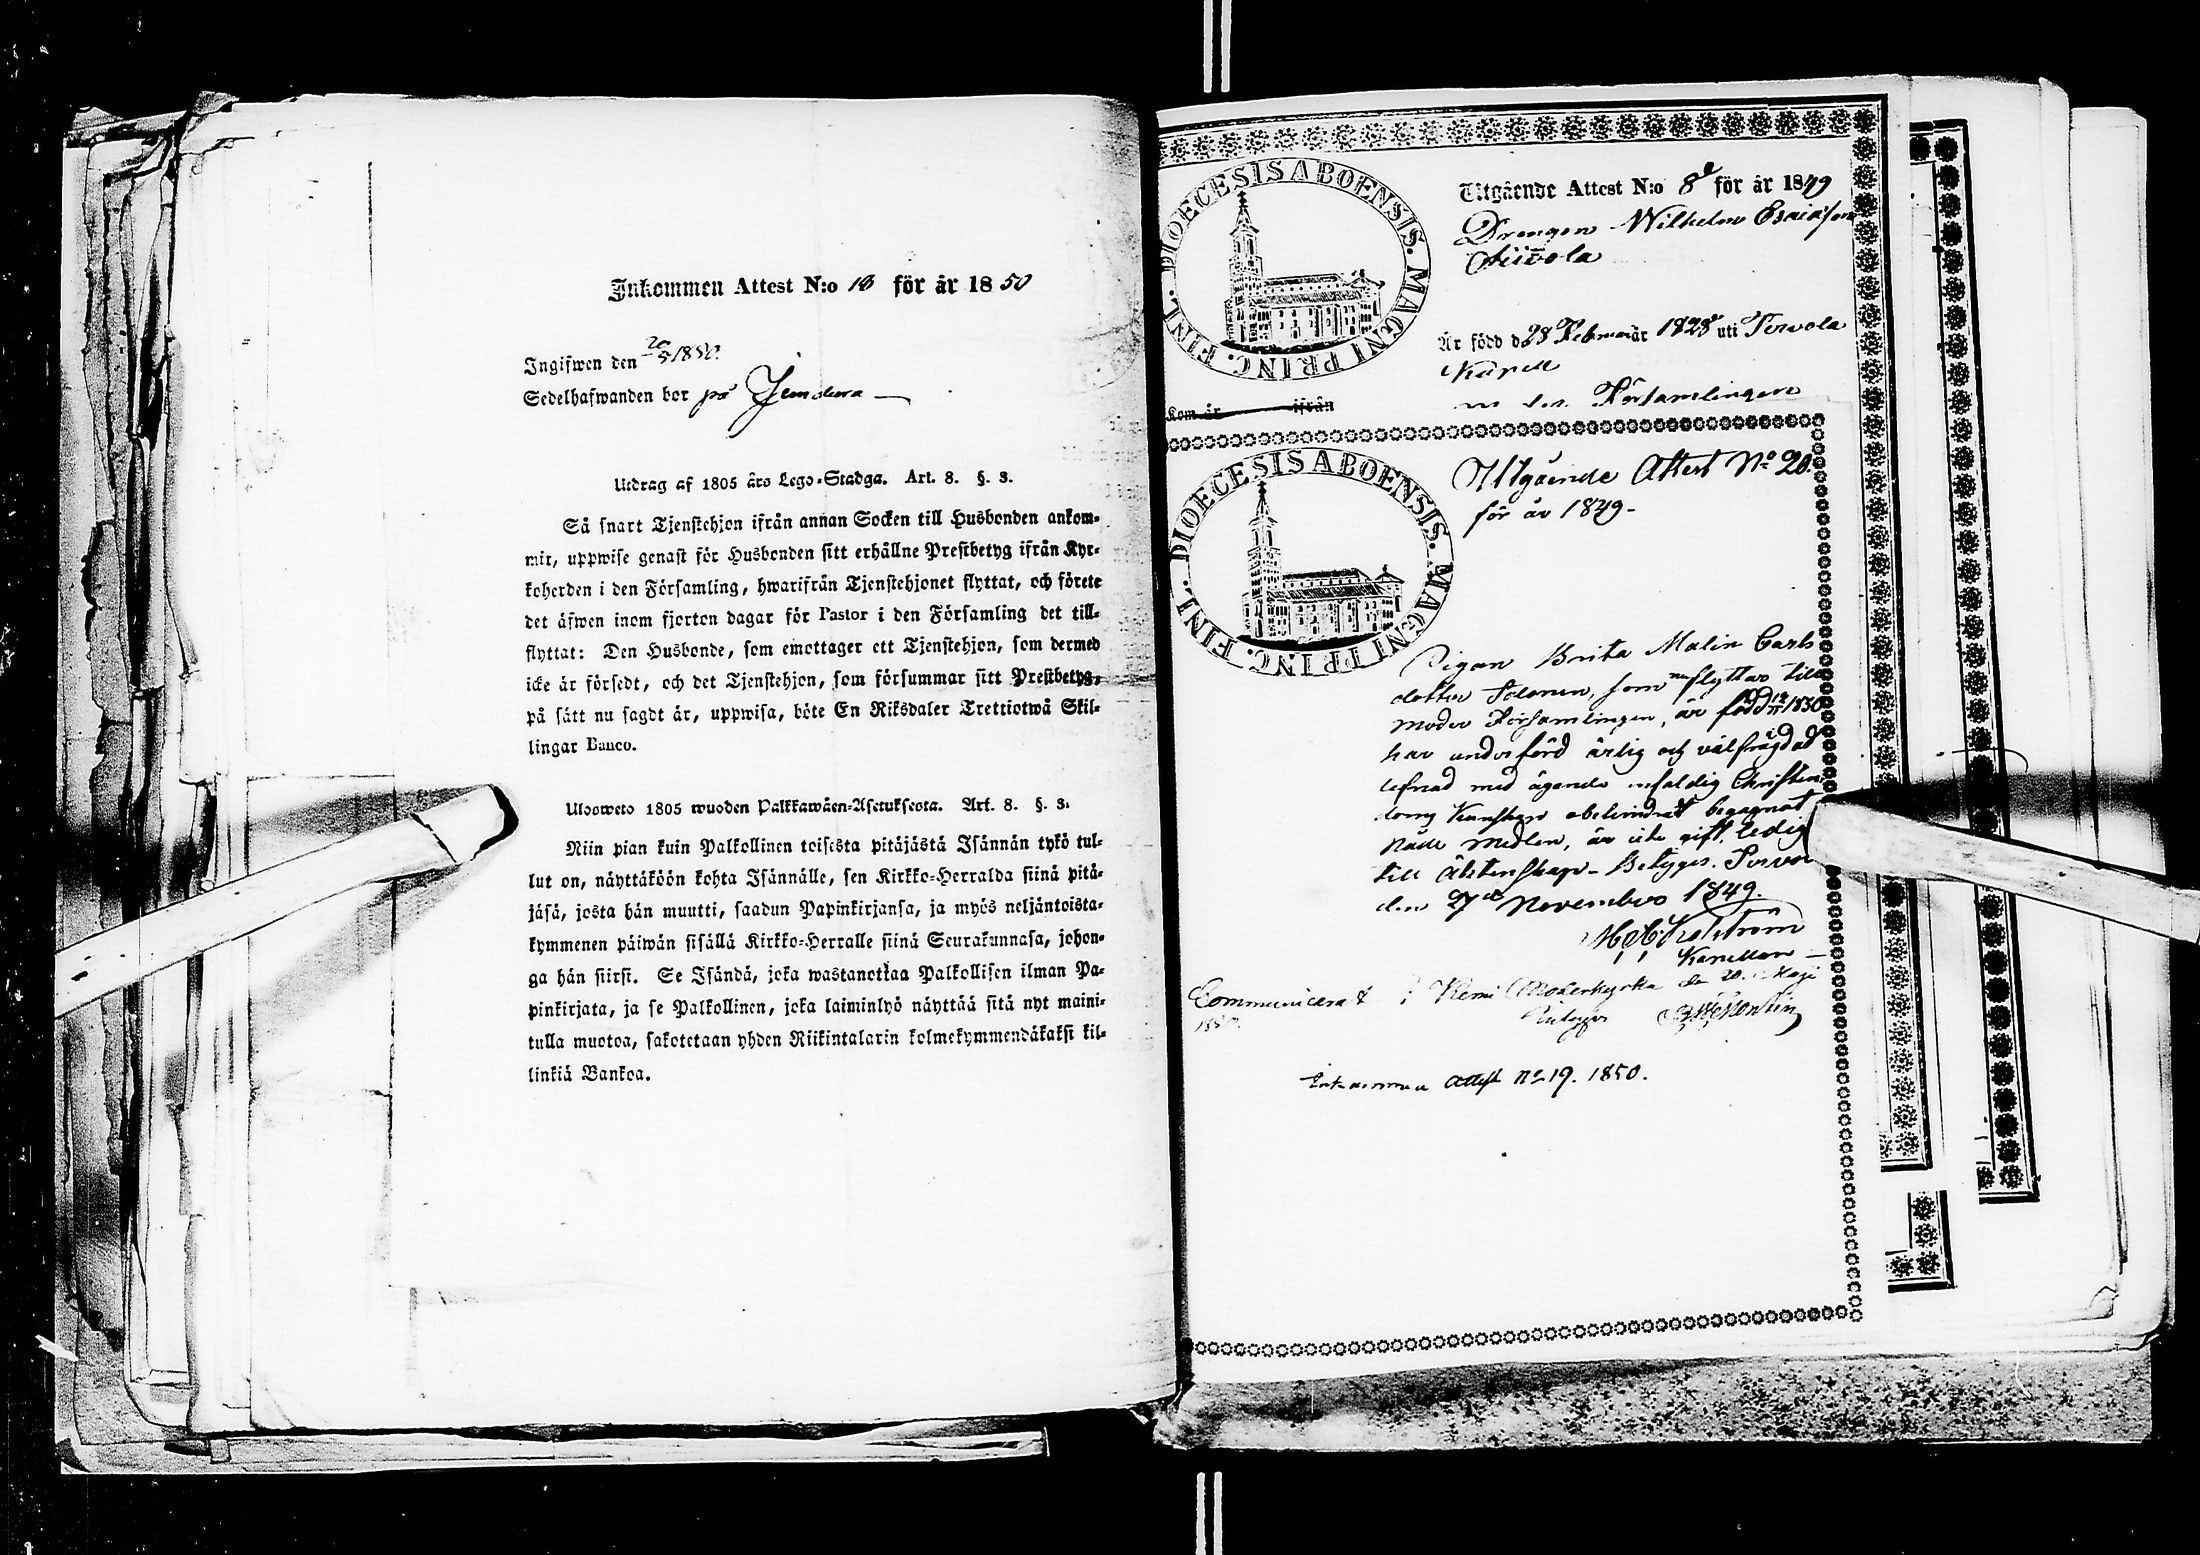 Inkommen Attest N:o 18 för år 1850
Ingifwen den 20/5 1850.
Sedelhafwanden bor på
Utdrag af 1805 års Lego-Stadga. Art. 8. §. 3.
Så snart Tjenstehjon ifrån annan Socken till Husbonden ankom-
mit, uppwise genast för Husbonden sitt erhållne Prestbetyg ifrån Kyr-
koherden i den Församling, hwarifrån Tjenstehjonet flyttat, och förete
det äfwen inom fjorton dagar för Pastor i den Församling det till-
flyttat: Den Husbonde, som emottager ett Tjenstehjon, som dermed
icke är försedt, och det Tjenstehjon, som försummar sitt Prestbetyg,
på sätt nu sagdt är, uppwisa, böte En Riksdaler Trettiotwå Skil-
lingar Banco.
Ulosweto 1805 wuoden Palkkawäen-Asetuksesta. Art. 8. §. 3.
Niin pian kuin Palkollinen toisesta pitäjästä Isännän tykö tul-
lut on, näyttäköön kohta Isännälle, sen Kirkko-Herralda siinä pitä-
jäsä, josta hän muutti, saadun Papinkirjansa, ja myös neljäntoista-
kymmenen päiwän sisällä Kirkko-Herralle siinä Seurakunnasa, johon-
ga hän siirsi. Se Isändä, joka wastanottaa Palkollisen ilman Pa-
pinkirjata, ja se Palkollinen, joka laiminlyö näyttää sitä nyt maini-
tulla muotoa, sakotetaan yhden Riikintalarin kolmekymmendäkaksi kil-
linkiä Bankoa.
DIOECESIS ABOENSIS. MAGNI PRINC. FINL.
Utgående Attest N:o 8 för år 1849
Drengen Wilhelm Esaiasson
Är född d 28 Februari är 1828 uti Tervola
Kapell
Kom år ifrån
Församlingen
DIOECESIS ABOENSIS. MAGNI PRINC. FINL.
Utgående Attest No 20.
för år 1849-
Pigan Brita Malin Carls
dotter som nu flyttar till
moder Församlingen, är född 12/11 1830
har under förd ärlig och välfrägdad
lefnad med ägande enfaldig Christen
doms Kunskap obehindrat begagnat
Nåde medlen, är icke gift, ledig
till Äktenskap- Betygas. Tervol
den 27de Novembr 1849.
Kapellan
Communicerat i Kemi Moderkyrka den 20. Maji
1850. Betygar
Inkommen Attest No 19. 1850.